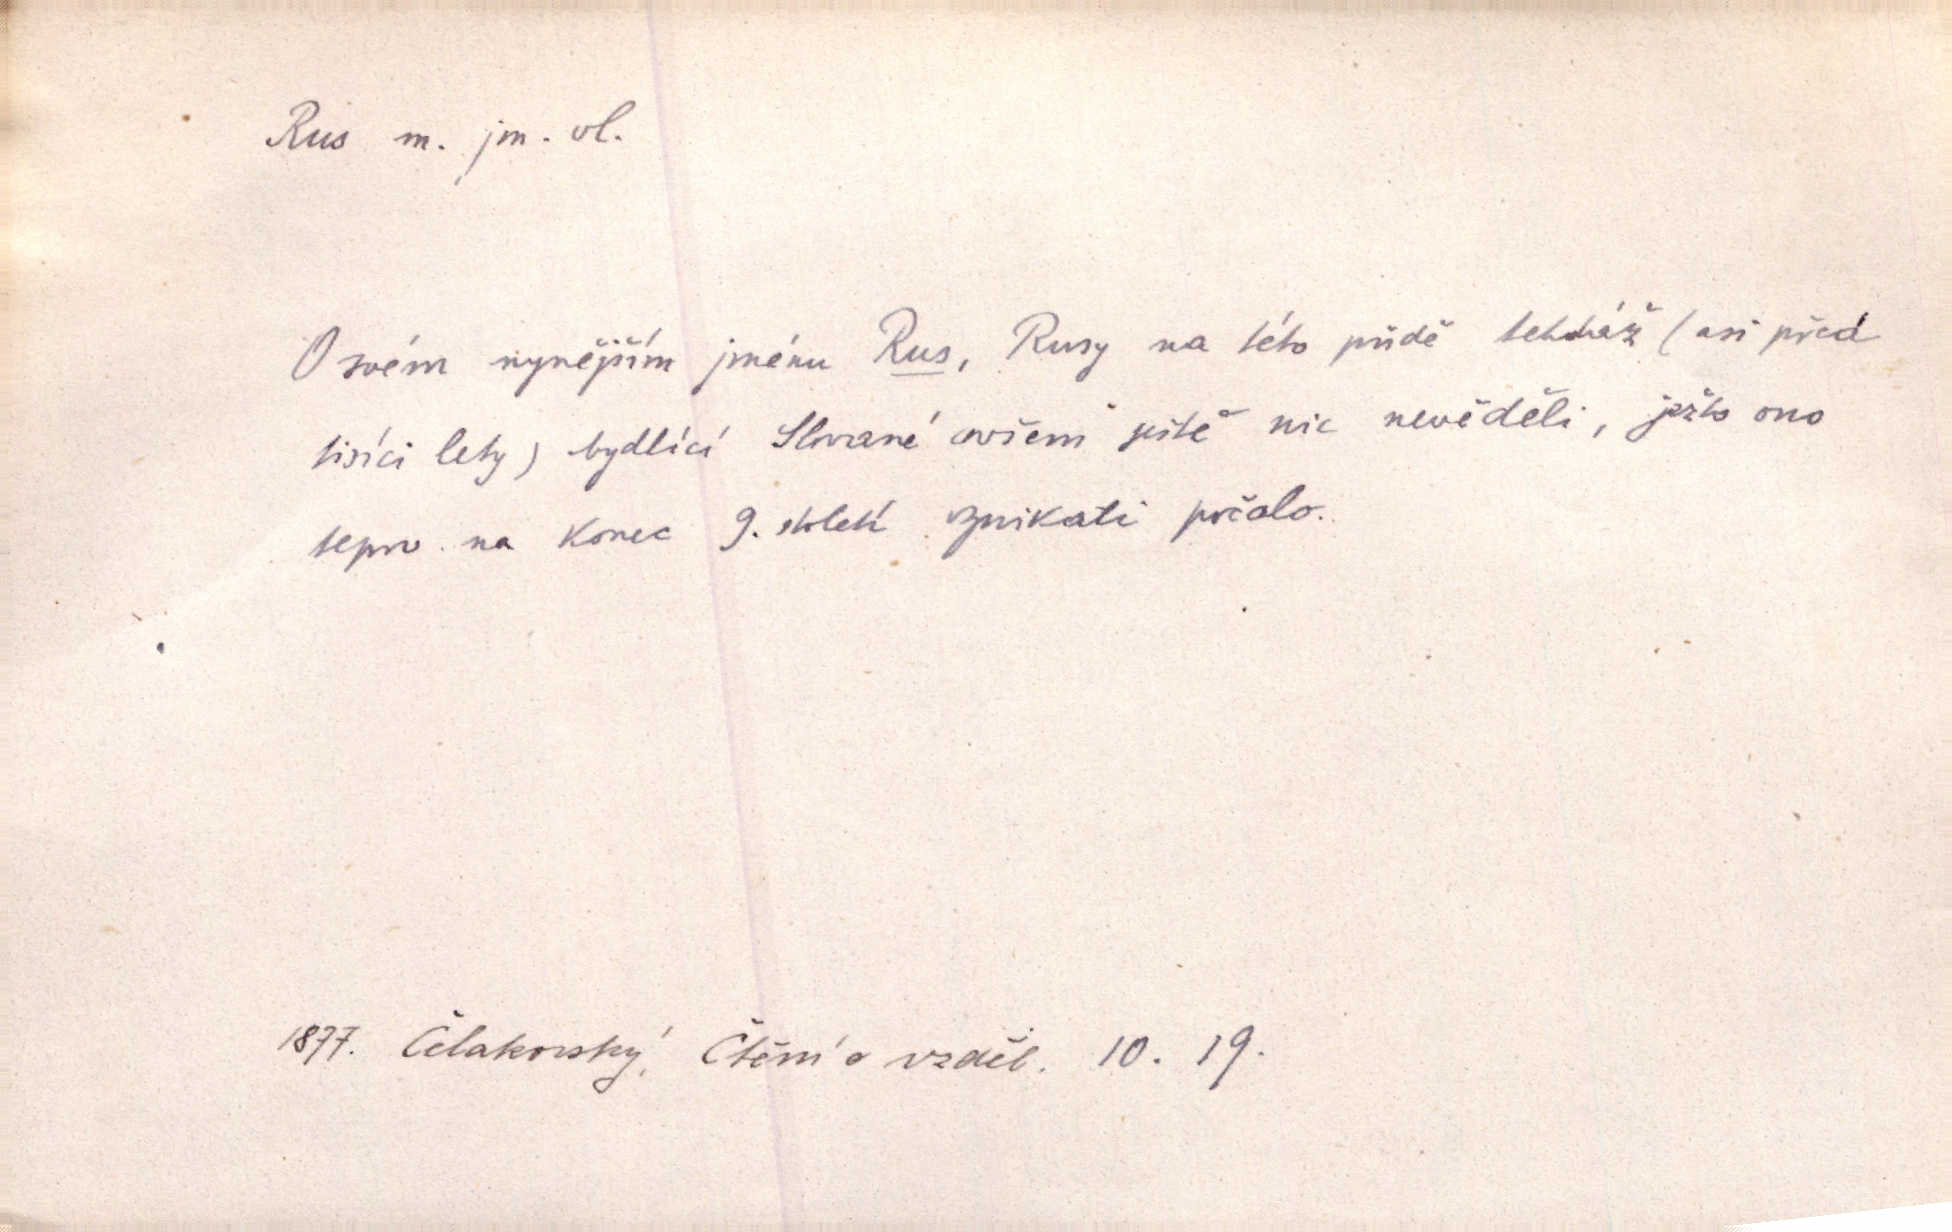 Rus m. jm. vl.
O svém nynějším jménu Rus, Rusy na této půdě tehdáž (asi před
tisíci lety) bydlící Slované ovšem ještě nic nevěděli, ježto ono
teprv na konec 9. století vznikati počalo.
1877. Čelakovský, Čtění o vzděl. 10. 19.